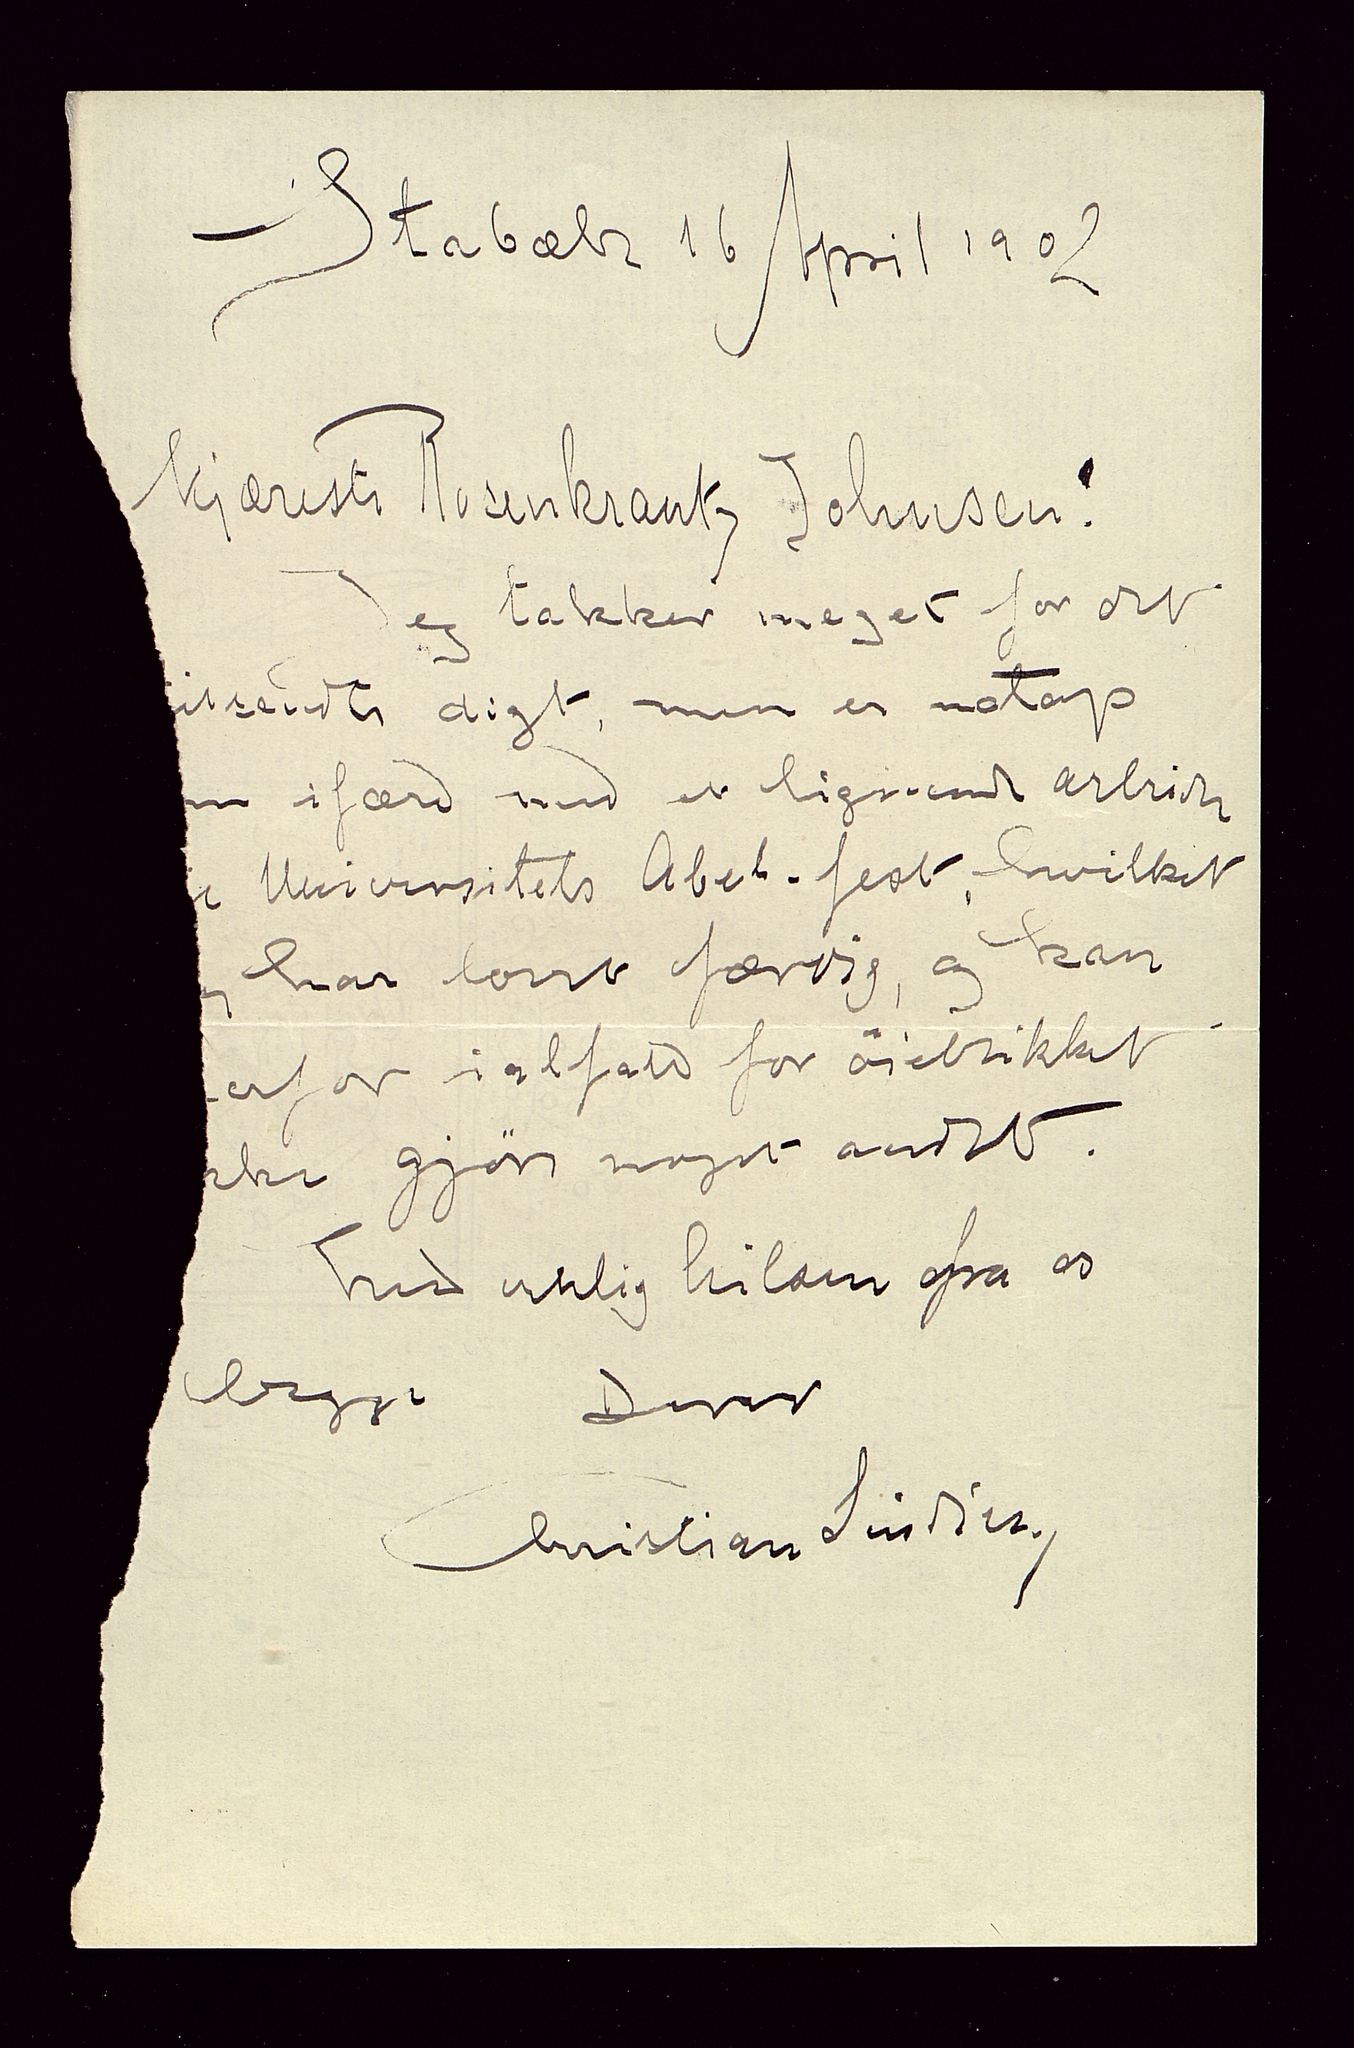 Stabæk 16 April 1902
Kjæreste Rosenkrantz Johnsen!
Jeg takker meget for det
tilsendte digt, men er netop
ifærd med et lignende arbeide
Universitets Abel-fest, hvilket
har lovet færdig, og kan
derfor ialfald for öieblikket
ikke gjöre noget andet.
Med venlig hilsen fra os
begge Deres
Christian Sinding